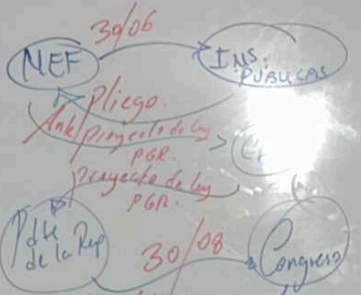 30/06
MEF
INS.
PUBLICAS
Pliego.
Ante/proyecto de ley
PGR.
Proyecto de ley
PGR.
Pdte
de la Rep
30/08
Congreso